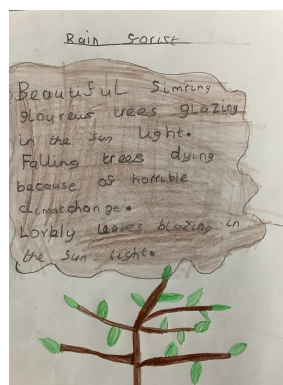 Rain forist
Beautiful Simring
gloureus trees glazing
in the sun light.
Falling trees dying
because of horrible
climatchange.
Lovely leaves blazing in
the sun light.